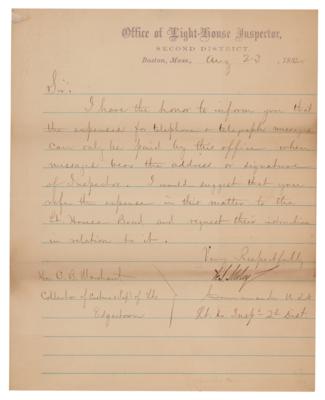 Office of Light-House Inspector,
SECOND DISTRICT,
Boston, Mass., Aug 23, 1882
Sir:
I have the honor to inform you that
the expenses for telephone or telegraphic messages
can only be paid by this office when
messages bear the address or signature
of Inspector. I would suggest that you
refer the expense in this matter to the
Lt. House Board and request their
in relation to it.
Very Respectfully
Commander U.S.N.
Lt. Ho. Insp. 2d Dist
C. B. Marchant
Collector of Customs
Edgartown